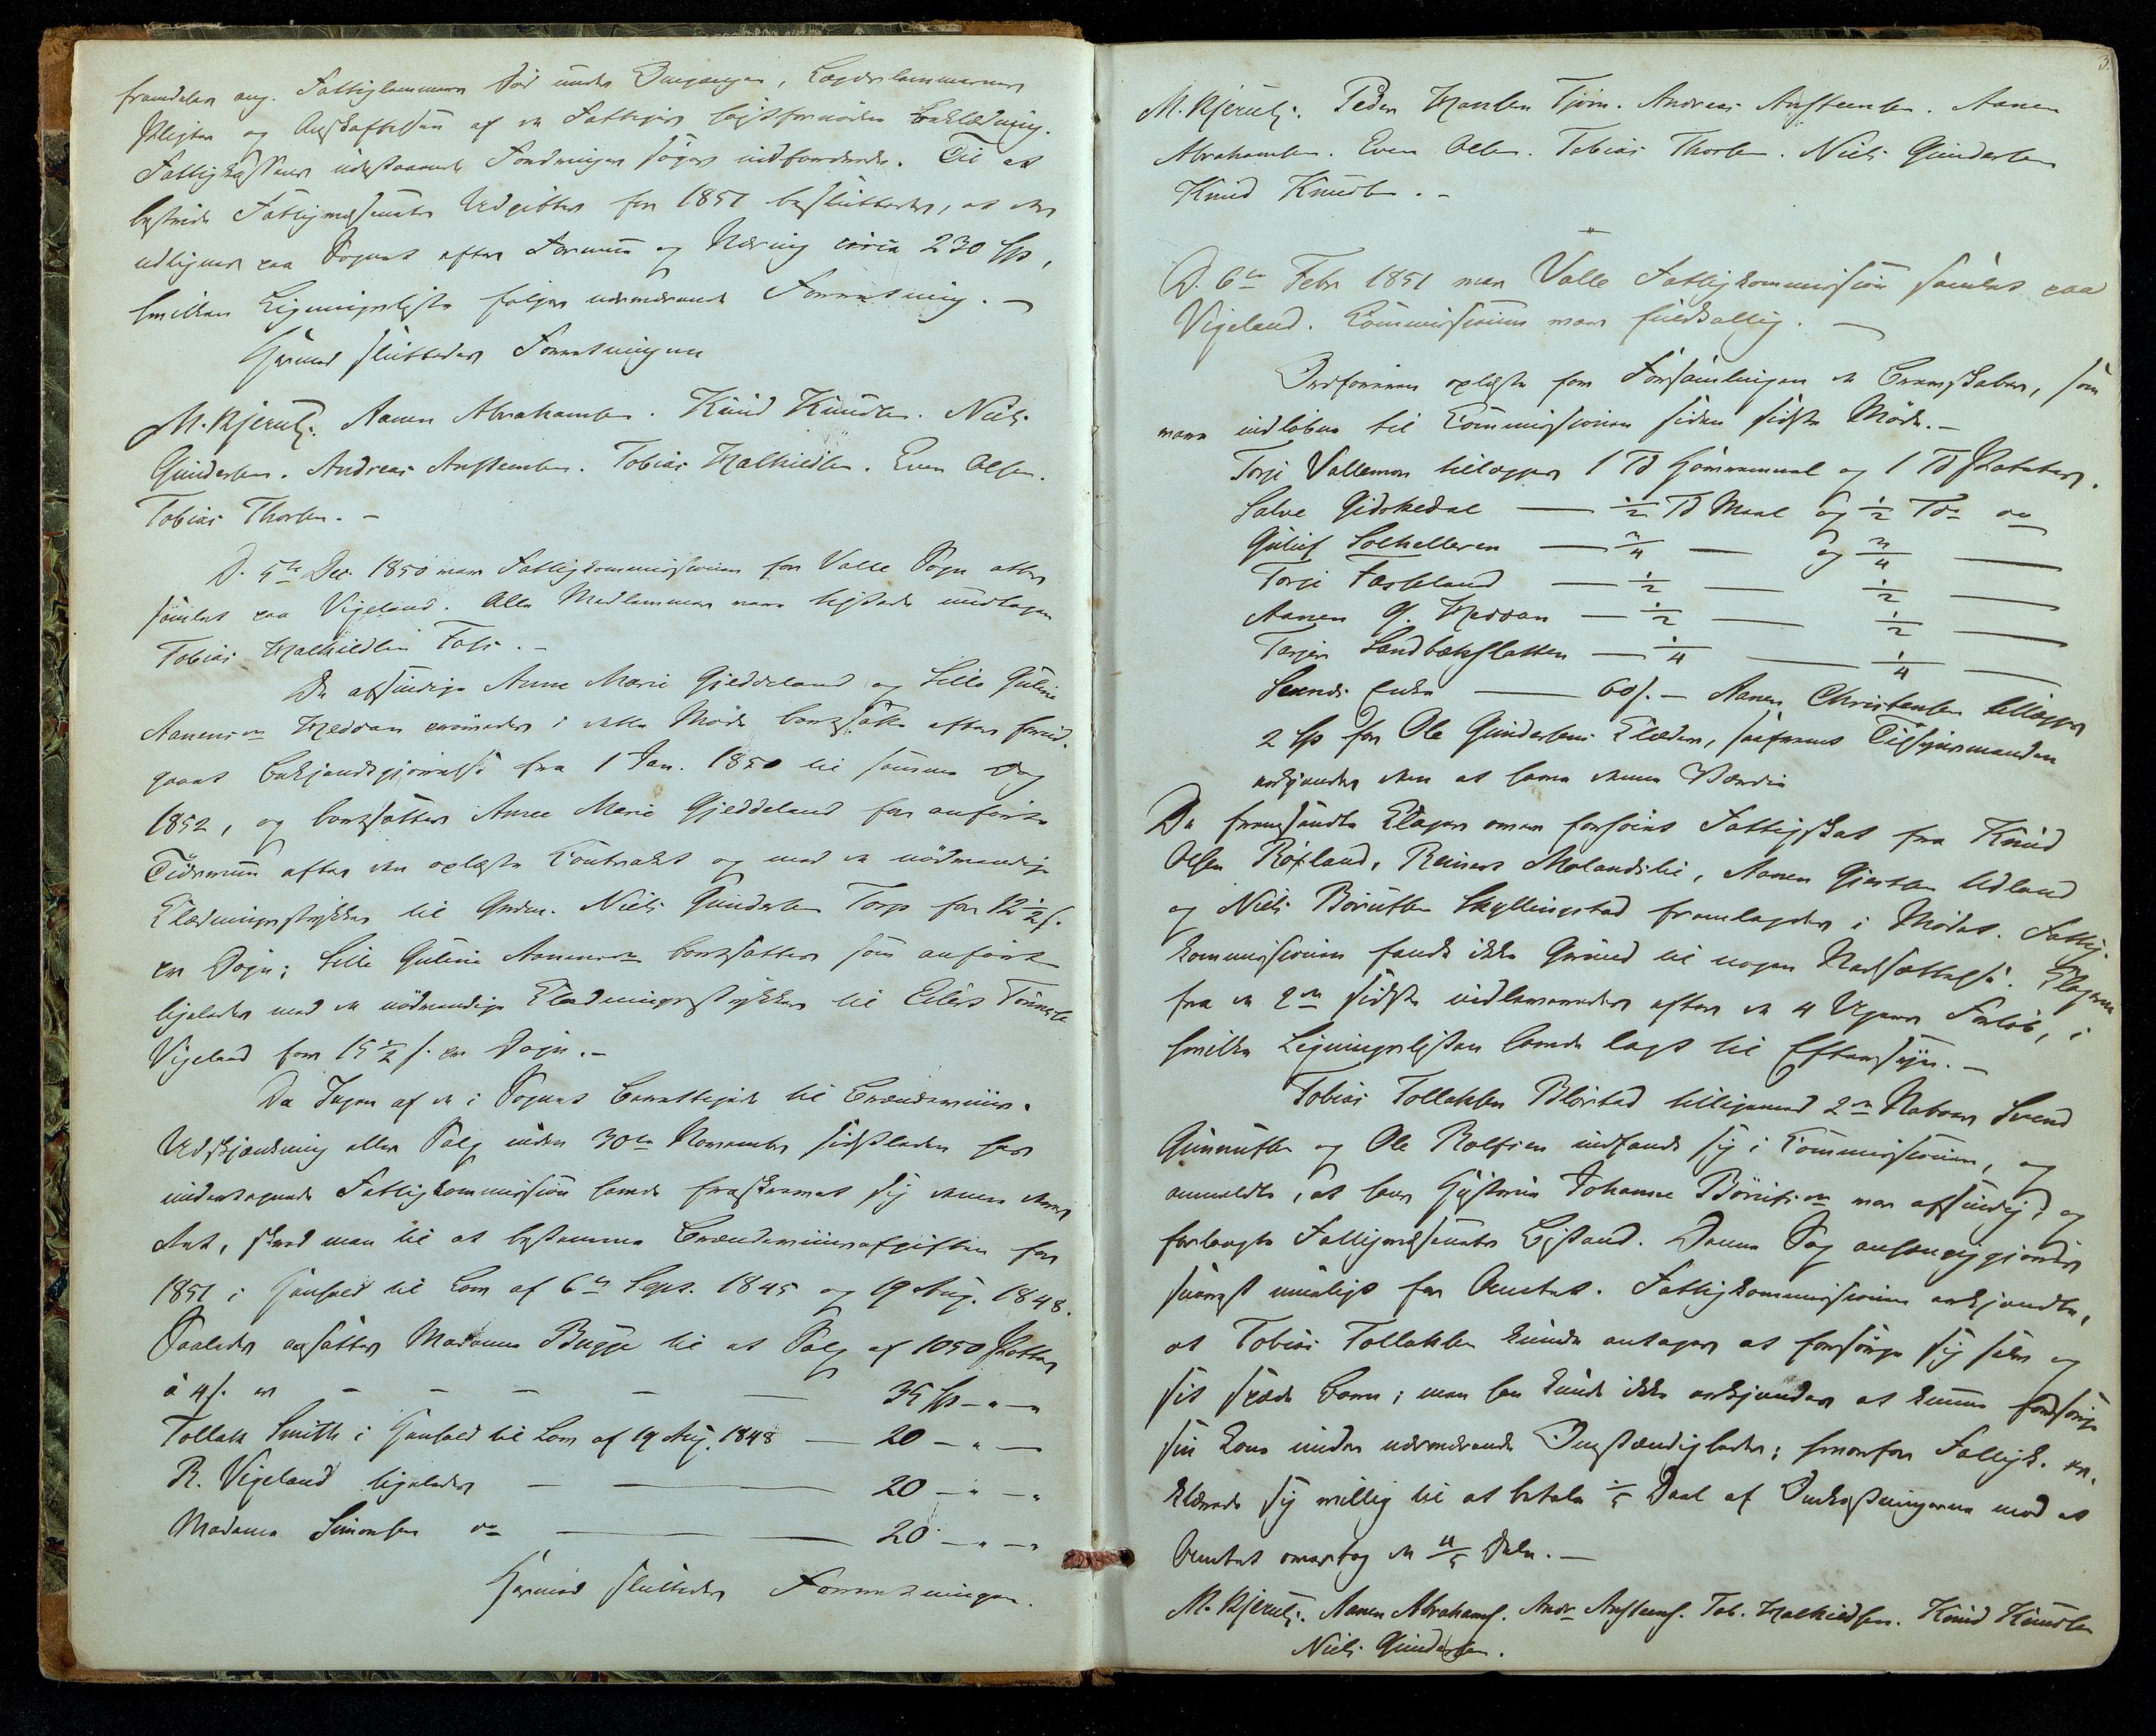 fremdeles ang. Fattiglemmers Kød under Omgangen, Lægdslemmernes
Pligter og Anskaffelsen af de Fattiges høistfornødne Beklædning.
Fattigkassens udestaaende Fordringer søges inddrevne. Til at
bestride Fattigvæsenets Udgifter for 1851 besluttedes, at der
udlignes paa Sognet efter Formue og Næring circa 230 Sp,
hvilken Ligningsliste følger nærværende Forretning. —
Hermed sluttedes Forretningen
M. Kjerulf. Aanen Abrahamsen. Knud Knudsen. Niels
Gundersen. Andreas Anstensen. Tobias Mathiedsen. Even Olsen.
Tobias Thorsen. —
D. 5te Dec. 1850 var Fattigkommissionen for Valle Sogn atter
samlet paa Vigeland. Alle Medlemmer vare tilstede undtagen
Tobias Mathiedsen Foss. —
De afsindige Anne Marie Gjeddeland og Sille Guline
Aanensdr Heddan i dette Møde bortsatte efter forud-
gaaet Bekjendtgjørelse fra 1 Jan. 1850 til samme Dag
1852, og bortsattes Anne Marie Gjeddeland for anførte
Tidsrum efter den oplæste Contrakt og med de nødvendige
Klædningsstykker til Grdm. Niels Gundersen Torp for 12½ s.
pr Døgn; Sille Guline Aanensdr bortsattes som anført
ligeledes med de nødvendige Klædningsstykker til Eilert Tønnesen
Vigeland for 15½ s. pr Døgn. —
Da Ingen af de i Sognet Berettigede til Brændeviins-
Udskjænkning eller Salg inden 30te November sidstleden for
undertegnede Fattigkommission havde fraskrevet sig denne deres
Ret, skred man til at bestemme Brændeviinsafgiften for
1851 i Henhold til Lov af 6te Sept. 1845 og 19 Aug. 1848.
Saaledes ansattes Madame Bugge til et Salg af 1050 Potter
à 4 s. er — — — — — 35 Sp — " — "
Tollak Smith i Henhold til Lov af 19 Aug. 1848 — 20 — " —
R. Vigeland ligeledes — — — 20 — " — "
Madame Simonsen do — — 20 — " — "
Hermed sluttedes Forretningen.
3.
M. Kjerulf. Peder Hansen Tjøm. Andreas Anstensen. Aanen
Abrahamsen. Even Olsen. Tobias Thorsen. Niels Gundersen
Knud Knudsen. —
"
D. 6te Febr 1851 var Valle Fattigkommission samlet paa
Vigeland. Commissionen var fuldtallig. —
Ordføreren oplæste for Forsamlingen de Brevskaber, som
vare indløbne til Commissionen siden sidste Møde. —
Torje Vallemoen tillægges 1 Td Havremeel og 1 Td Poteter.
Salve Gidskedal — ½ Td Meel og ½ Td do
Guluf Solhelleren — ¾ — og ¾ —
Torje Fasseland — ½ — ½ —
Aanen G. Heddan — ½ — ½ —
Terjer Sandbækslatten — ¼ — ¼ —
Svends Enke — 60 s. — Aanen Christensen tillægges
2 Sp for Ole Gundersens Klæder, saafremt Tilsynsmanden
erkjender dem at have denne Værdie
De fremsendte Klager over forhøiet Fattigskat fra Knud
Olsen Røiland, Reinert Molandslie, Aanen Gjertsen Udland
og Niels Børufsen Skyllingstad fremlagdes i Mødet. Fattig-
kommissionen fandt ikke Grund til nogen Nedsættelse. Klagerne
fra de 2de sidste indleveredes efter de 4 Ugers Forløb, i
hvilke Ligningslisten havde lagt til Eftersyn. —
Tobias Tollaksen Blørstad tilligemed 2de Naboer Svend
Gunnufsen og Ole Rolfsen indfandt sig i Commissionen, og
anmeldte, at hans Hustrue Johanne Børufsdr var afsindig, og
forlangte Fattigvæsenets Bistand. Denne Sag anhængiggjordes
snarest muligt for Amtet. Fattigkommissionen erkjendte,
at Tobias Tollaksen kunde antages at forsørge sig selv og
sit spæde Barn; men han kunde ikke erkjendes at kunne forsørge
sin Kone under nærværende Omstændigheder; hvorfor Fattigk. er-
klærede sig villig til at betale ⅕ Deel af Omkostningerne mod at
Amtet overtog de ⅘ Dele. —
M. Kjerulf. Aanen Abrahams. Andr Anstens. Tob. Mathiedsen. Knud Knudsen
Niels Gundersen.